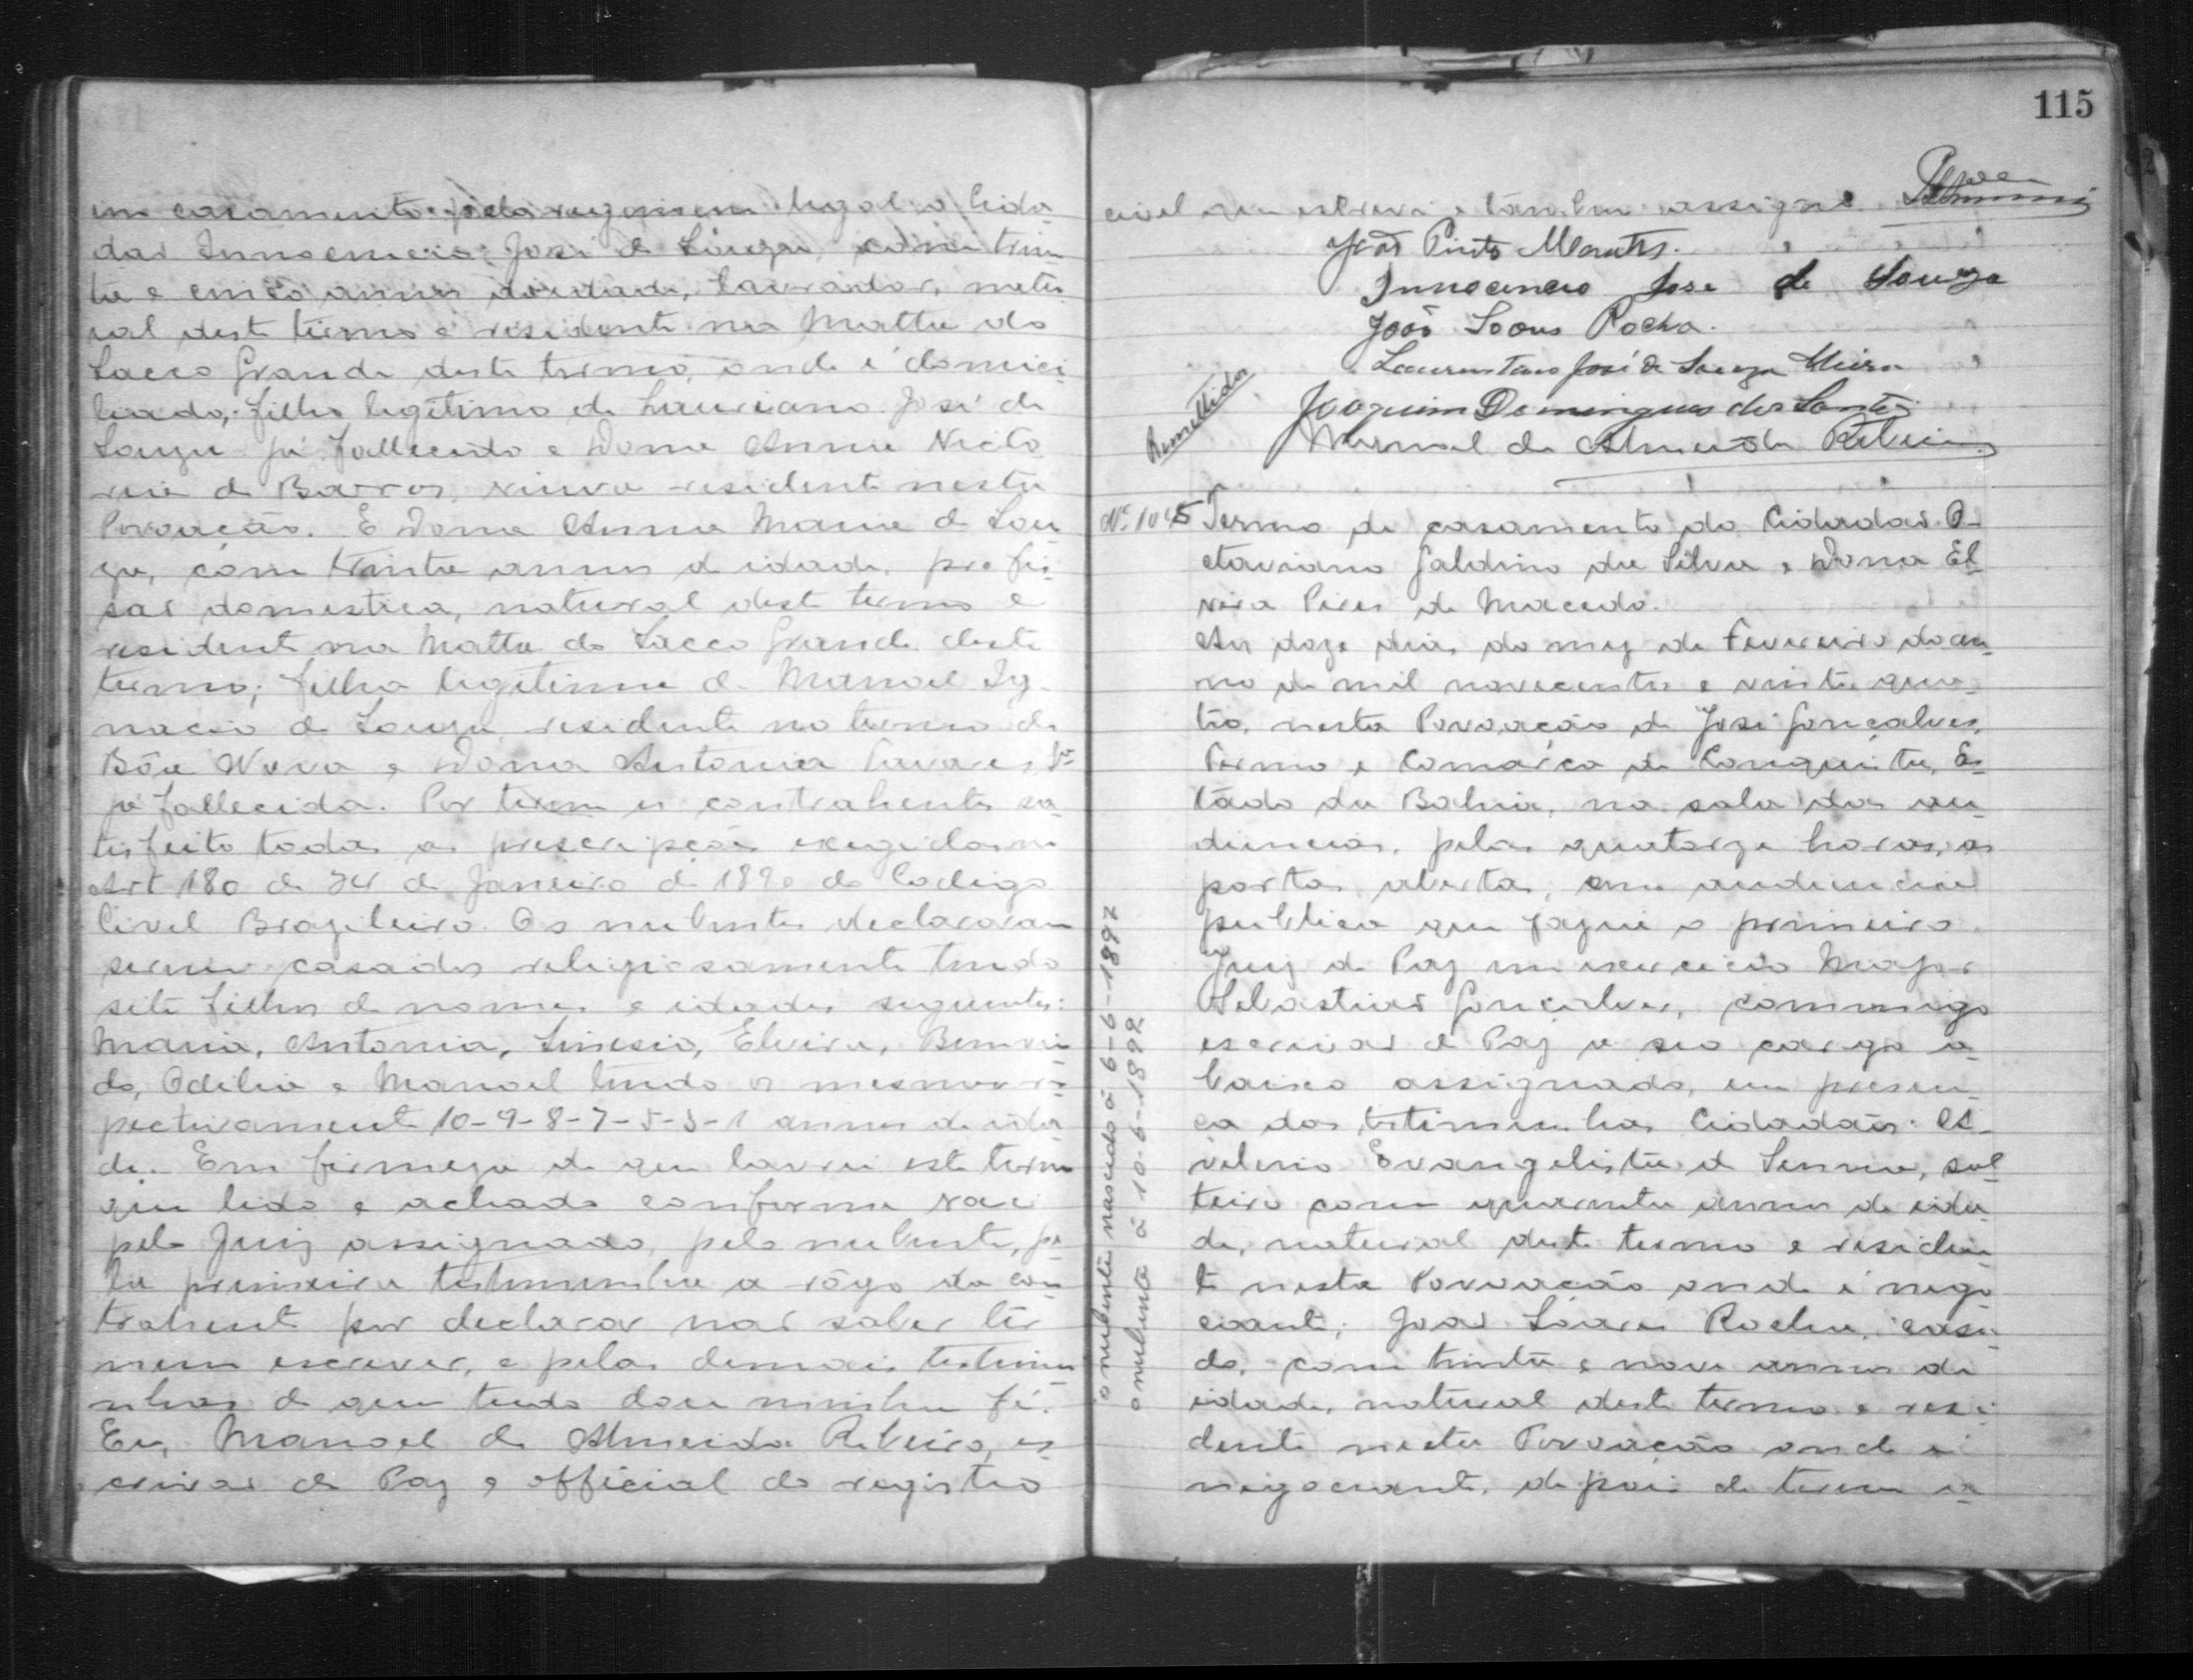 em casamento pelo regimem legal o Cida
dão Innocencio José de Souza, com trin
ta e cinco annos de idade, lavrador, natu
ral deste termo e residente na Matta do
Sacco Grande deste termo, onde é domici
liado, filho legitimo de Lauriano José de
Souza já fallecido e Dona Anna Victo
ria de Barros, viuva residente nesta
Povoação. E Dona Anna Maria de Sou
za, com trinta annos de idade, profis
são domestica, natural deste termo e
residente na Matta do Sacco Grande deste
termo; filha legitima de Manoel Ig-
nacio de Souza, residente no termo de
Bôa Nova e Dona Antonia Tavares,
já fallecida. Por terem os contrahentes sa
tisfeito todas as prescripções exigidas no
Art 180 de 24 de Janeiro de 1890 do Codigo
Civel Brazileiro. Os nubentes declararam
serem casados religiosamente tendo
sete filhos de nomes e idades seguintes:
Maria, Antonia, Sinesio, Elvira, Bemvin
do, Odilia e Manoel tendo os mesmos res
pectivamente 10-9-8-7-5-3-1 annos de ida
de. Em firmeza do que lavrei este termo
que lido e achado conforme vae
pelo Juiz assignado, pelo nubente, pe
la primeira testemunha a rôgo da con
trahente por declarar não saber lêr
nem escrever, e pelas demais testemu
nhas do que tudo dou minha fé.
Eu, Manoel de Almeida Ribeiro, es
crivão de Paz e official do registro
115
civel que escrevi e tambem assigno.
João Pinto Montes.
Innocencio Jose de Souza
João Soares Rocha.
Laurentino José de Souza Meira
Joaquim Domingues dos Santos
Manoel de Almeida Ribeiro
Remettido
Nº 1045 Termo de casamento do Cidadão O-
ctaviano Galdino da Silva e Dona El
vira Pires de Macedo.
Aos doze dias do mez de Fevereiro do an
no de mil novecentos e vinte qua-
tro, nesta Povoação de José Gonçalves,
Termo e Comarca de Conquista, Es
tado da Bahia, na sala das au
diencias, pelas quatorze horas, as
portas abertas, em audiencia
publica que fazia o primeiro
Juiz de Paz em exercicio Major
Sebastião Gonçalves, commigo
escrivão de Paz a seo cargo a
baixo assignado, em presen
ça das testimunhas Cidadãos:
Evangelista de Senna, sol
teiro com quarenta annos de ida
de, natural deste termo e residen
te nesta Povoação onde é nego
ciante; João Soares Rocha, casa
do, com trinta e nove annos de
idade, natural deste termo e resi
dente nesta Povoação onde é
negociante, depois de terem
o nubente nascido á 6-6-1897
a nubente á 10-6-1899